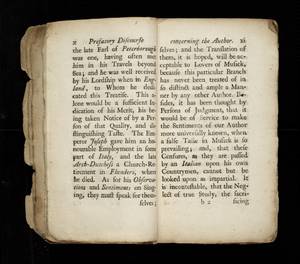 x Prefatory Discourse
the late Earl of Peterborough
was one, having often met
him in his Travels beyond
Sea; and he was well received
by his Lordship when in Eng-
land, to Whom he dedi-
cated this Treatise. This a-
lone would be a sufficient In-
dication of his Merit, his be-
ing taken Notice of by a Per-
son of that Quality, and di-
stinguishing Taste. The Em-
peror Joseph gave him an ho-
nourable Employment in some
part of Italy, and the late
Arch-Dutchess a Church-Re-
tirement in Flanders, where
he died. As for his Observa-
tions and Sentiments on Sing-
ing, they must speak for them-
selves;
concerning the Author. xi
selves; and the Translation of
them, it is hoped, will be ac-
ceptable to Lovers of Musick,
because this particular Branch
has never been treated of in
so distinct and ample a Man-
ner by any other Author. Be-
sides, it has been thought by
Persons of Judgment, that it
would be of Service to make
the Sentiments of our Author
more universally known, when
a false Taste in Musick is so
prevailing; and, that these
Censures, as they are passed
by an Italian upon his own
Countrymen, cannot but be
looked upon as impartial. It
is incontestable, that the Neg-
lect of true Study, the sacri-
b 2 ficing